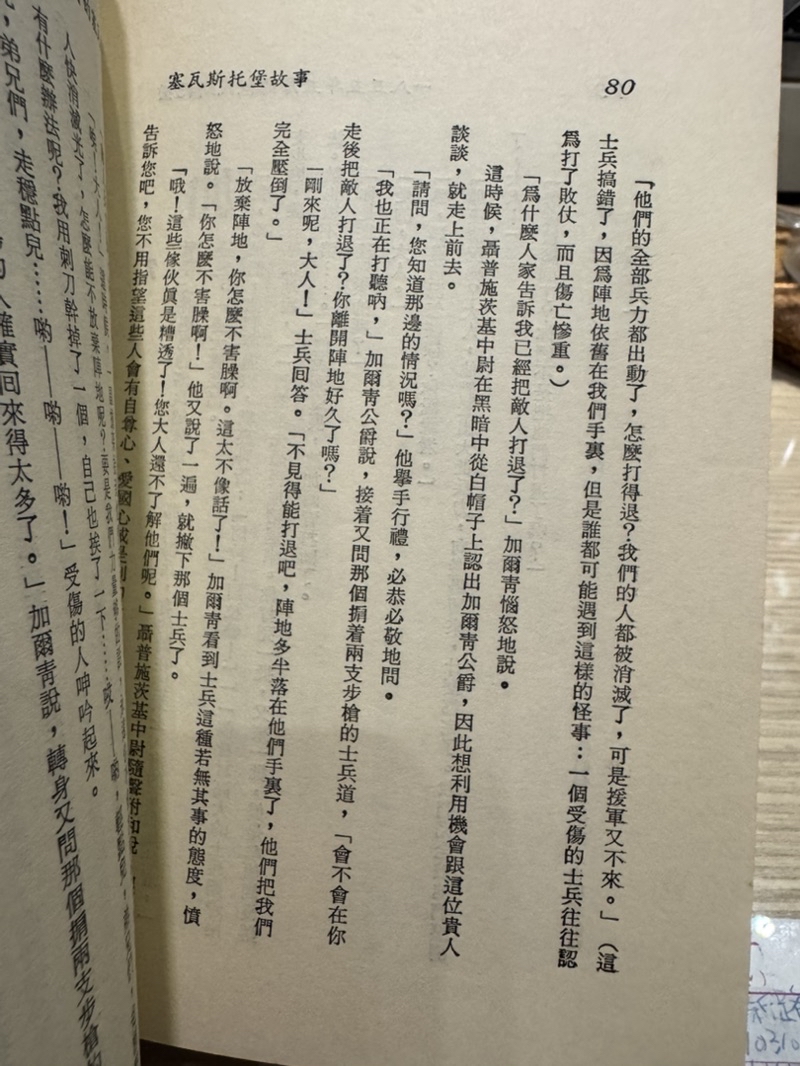 80
塞瓦斯托堡故事
「他們的全部兵力都出動了，怎麼打得退？我們的人都被消滅了，可是援軍又不來。」（這
士兵搞錯了，因為陣地依舊在我們手裏，但是誰都可能遇到這樣的怪事：一個受傷的士兵往往認
為打了敗仗，而且傷亡慘重。）
「為什麼人家告訴我已經把敵人打退了？」加爾青惱怒地說。
這時候，聶普施茨基中尉在黑暗中從白帽子上認出加爾青公爵，因此想利用機會跟這位貴人
談談，就走上前去。
「請問，您知道那邊的情況嗎？」他舉手行禮，必恭必敬地問。
「我也正在打聽吶，」加爾青公爵說，接着又問那個捎着兩支步槍的士兵道，「會不會在你
走後把敵人打退了？你離開陣地好久了嗎？」
「剛來呢，大人！」士兵回答。「不見得能打退吧，陣地多半落在他們手裏了，他們把我們
完全壓倒了。」
「放棄陣地，你怎麼不害臊啊。這太不像話了！」加爾青看到士兵這種若無其事的態度，憤
怒地說。「你怎麼不害臊啊！」他又說了一遍，就撇下那個士兵了。
「哦！這些傢伙真是糟透了！您大人還不了解他們呢。」聶普施茨基中尉隨聲附和說，
告訴您吧，您不用指望這些人會有自尊心、愛國心或是別
人快消滅光了，怎麼能不放棄陣地呢？
有什麼辦法呢？我用刺刀幹掉了一個，自己也挨了一下……
弟兄們，走穩點兒……喲——喲——喲！」受傷的人呻吟起來。
人確實回來得太多了。」加爾青說，轉身又問那個捎兩支步槍的